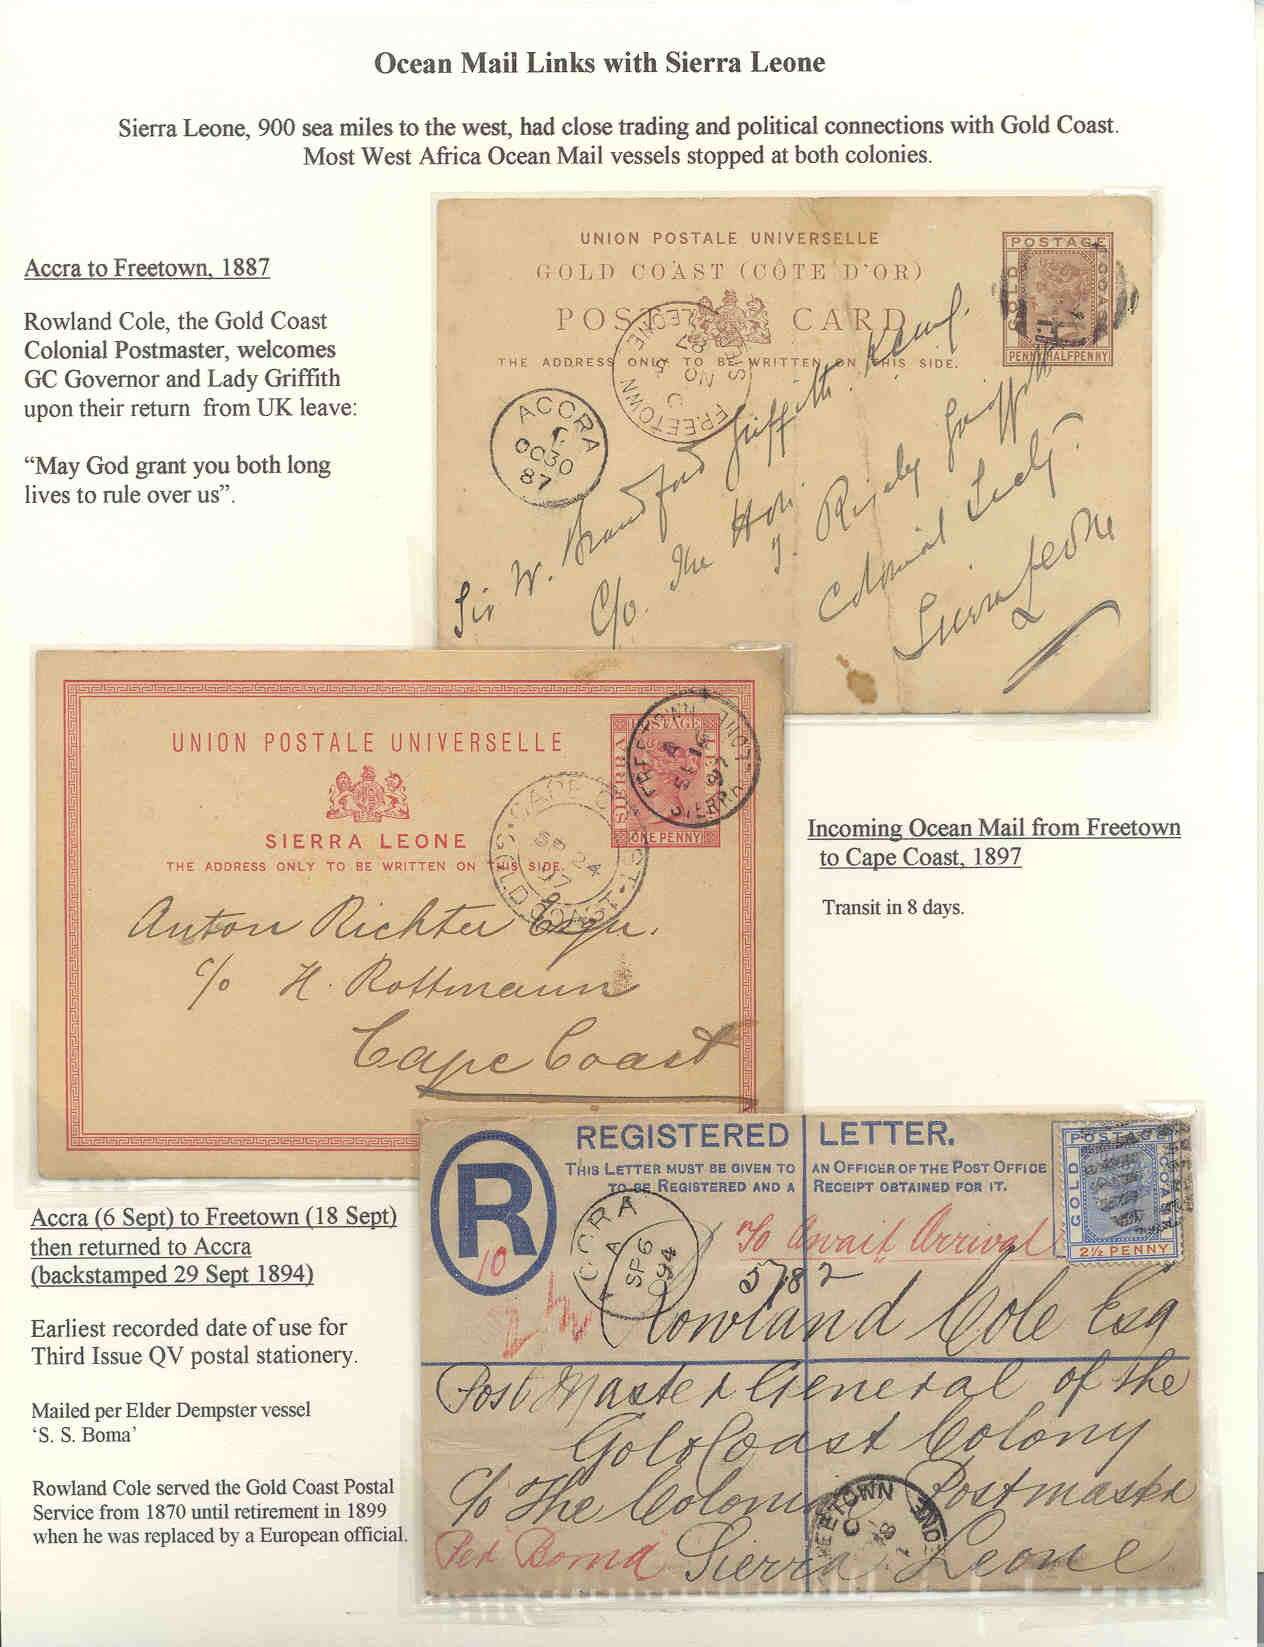 Ocean Mail Links with Sierra Leone
Sierra Leone, 900 sea miles to the west, had close trading and political connections with Gold Coast.
Most West Africa Ocean Mail vessels stopped at both colonies.
Accra to Freetown, 1887
Rowland Cole, the Gold Coast
Colonial Postmaster, welcomes
GC Governor and Lady Griffith
upon their return from UK leave:
“May God grant you both long
lives to rule over us”.
UNION POSTALE UNIVERSELLE
GOLD COAST (CÔTE D'OR)
POST CARD
THE ADDRESS ONLY TO BE WRITTEN ON THIS SIDE.
POSTAGE
GOLD COAST
PENNY HALFPENNY
FREETOWN SIERRA LEONE
C
NO
87
ACCRA
OC 30
87
Sir W. Brandford Griffith.
C/o. The Hon. T. Risely Griffith
Colonial Secty.
Sierra Leone
UNION POSTALE UNIVERSELLE
SIERRA LEONE
THE ADDRESS ONLY TO BE WRITTEN ON THIS SIDE.
POSTAGE
SIERRA LEONE
ONE PENNY
FREETOWN SIERRA LEONE
A
SE 16
97
CAPE COAST GOLD COAST
SP 24
97
Anton Richter Esqu.
c/o H. Rottmann
Cape Coast
Incoming Ocean Mail from Freetown
to Cape Coast, 1897
Transit in 8 days.
Accra (6 Sept) to Freetown (18 Sept)
then returned to Accra
(backstamped 29 Sept 1894)
Earliest recorded date of use for
Third Issue QV postal stationery.
Mailed per Elder Dempster vessel
‘S. S. Boma’
Rowland Cole served the Gold Coast Postal
Service from 1870 until retirement in 1899
when he was replaced by a European official.
REGISTERED LETTER.
THIS LETTER MUST BE GIVEN TO AN OFFICER OF THE POST OFFICE
TO BE REGISTERED AND A RECEIPT OBTAINED FOR IT.
R
10
POSTAGE
GOLD COAST
2½ PENNY
ACCRA
A
SP 6
94
To Await Arrival
5782
2½
Rowland Cole Esq
Post Master General of the
Gold Coast Colony
c/o The Colonial Postmaster
Per Boma Sierra Leone
FREETOWN
C